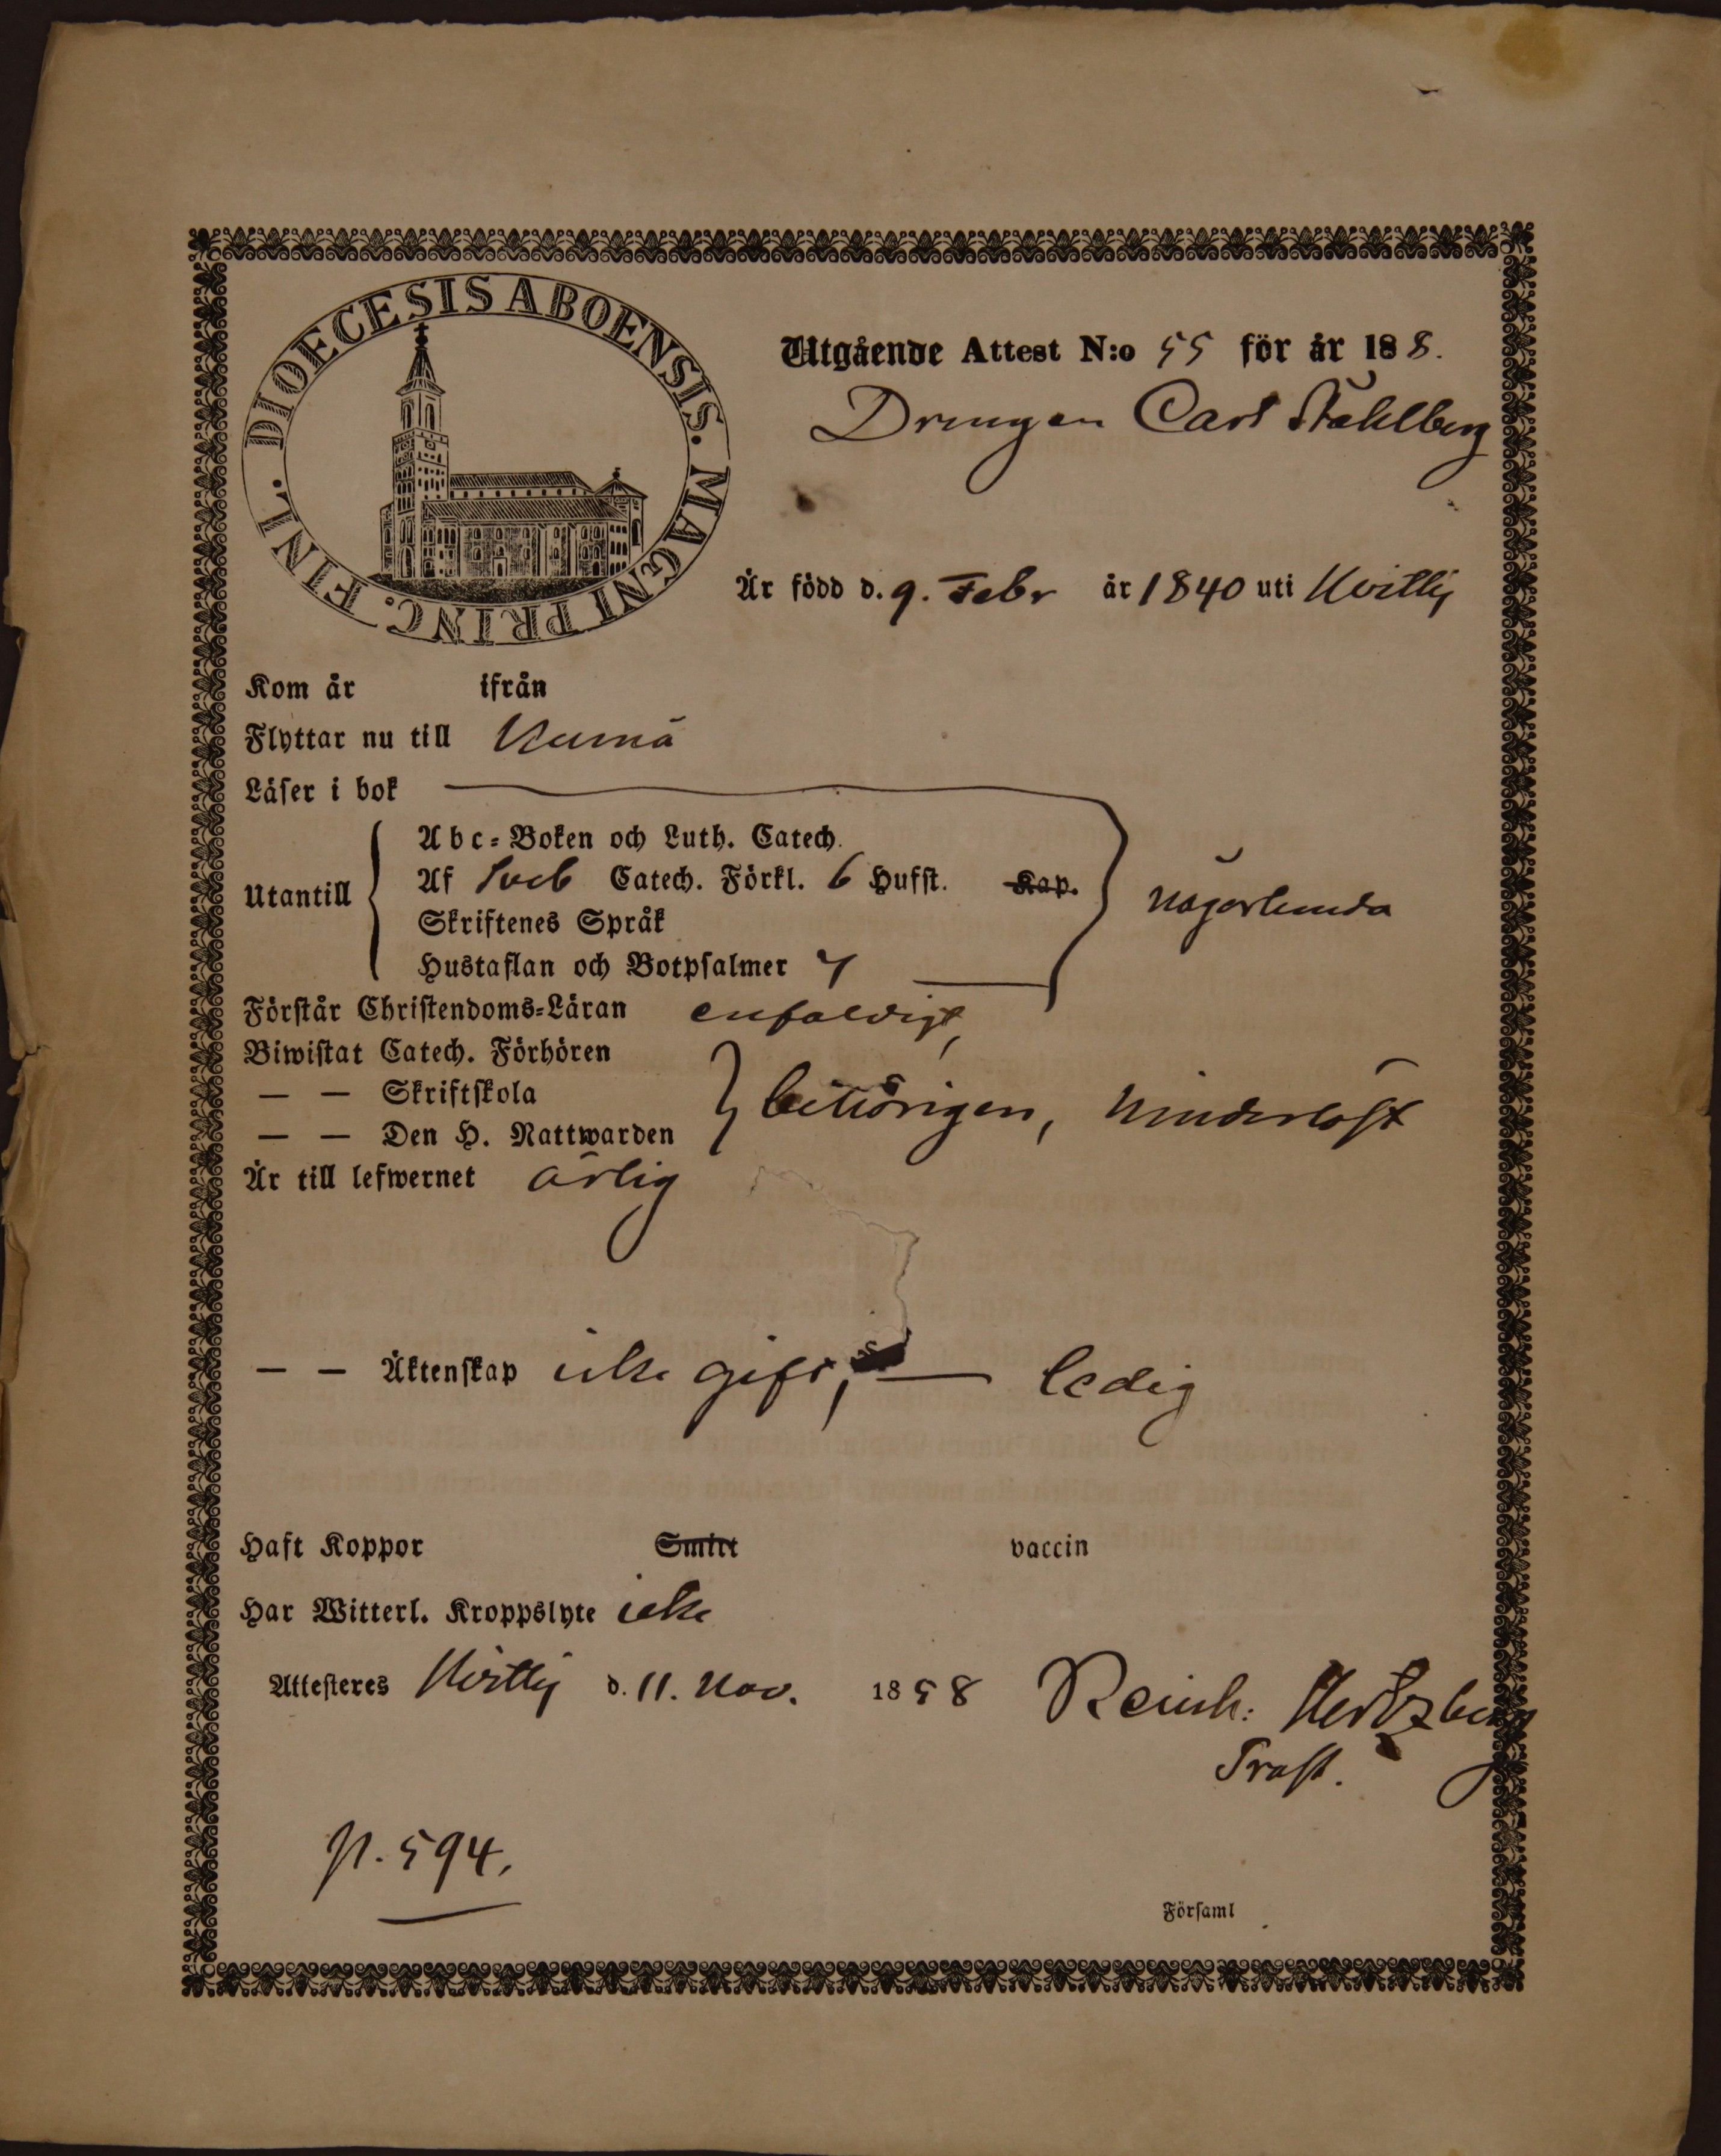 DIOECESIS ABOENSIS. MAGNI PRINC. FINL.
Utgående Attest N:o 55 för år 188.
Drengen Carl Ståhlberg
Är född d. 9. Febr år 1840 uti Hvittis
Kom år ifrån
Flyttar nu till Kumo
Läser i bok
Utantill
Abc-Boken och Luth. Catech.
Af Sveb Catech. Förkl. 6 Hufst. Kap.
Skriftenes Språk
Hustaflan och Botpsalmer 7
någorlunda
Förstår Christendoms-Läran enfaldigt,
Biwistat Catech. Förhören
— — Skriftskola
— — Den H. Nattwarden
behörigen, hinderlöst
Är till lefwernet ärlig
— — Äktenskap icke gift, — ledig
Haft Koppor Smitt vaccin
Har Witterl. Kroppslyte icke
Attesteres Hvittis d. 11. Nov. 1858 Reinh: Hertzberg
Prost.
p. 594.
Församl